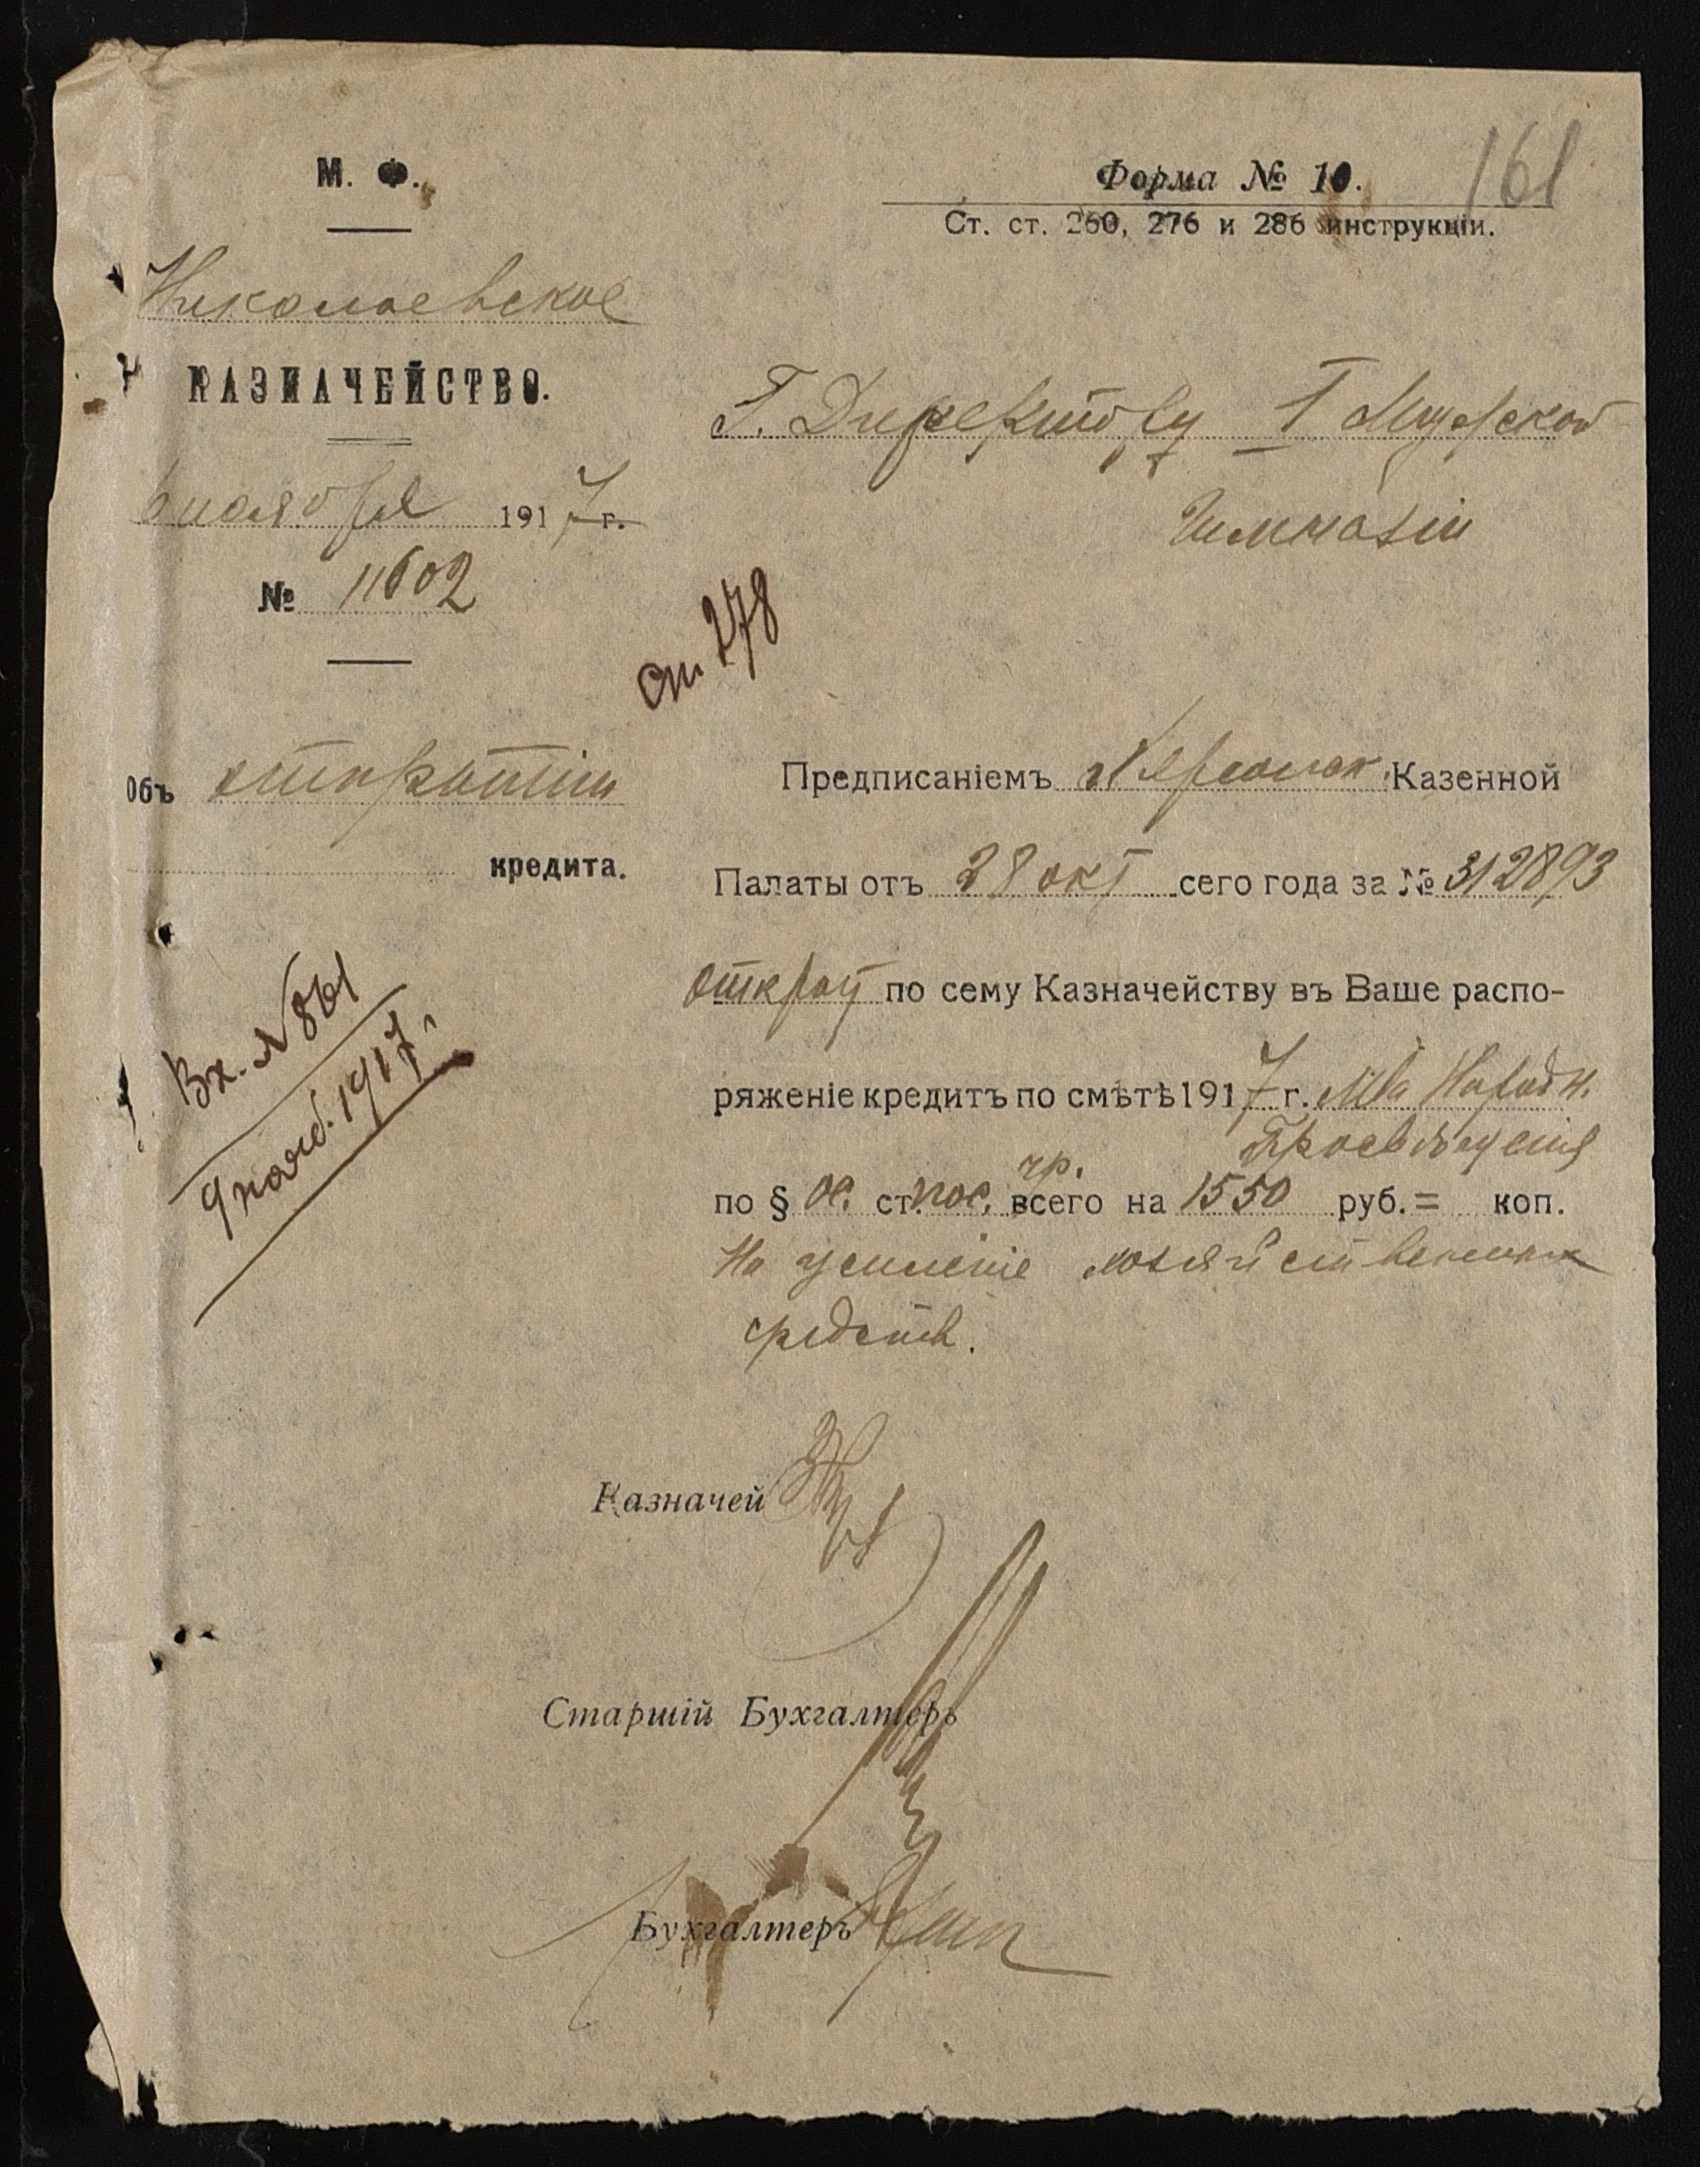 М. Ф.
Николаевское
КАЗНАЧЕЙСТВО.
6 ноября 1917 г.
№ 11602
Объ открытіи
кредита.
Вх. № 861
9 нояб. 1917 г.
Форма № 10.
161
Ст. ст. 260, 276 и 286 инструкціи.
Г. Директору I Мужской
Гимназіи
ст. 278
Предписаніемъ Херсонск. Казенной
Палаты отъ 28 окт сего года за № 312893
открыт по сему Казначейству въ Ваше распо-
ряженіе кредитъ по смѣтѣ 1917 г. М-ва Народн.
Просвѣщенія
по § ос. ст. пос. чр. всего на 1550 руб. = коп.
На усиленіе хозяйственных
средств.
Казначей
Старшій Бухгалтеръ
Бухгалтеръ